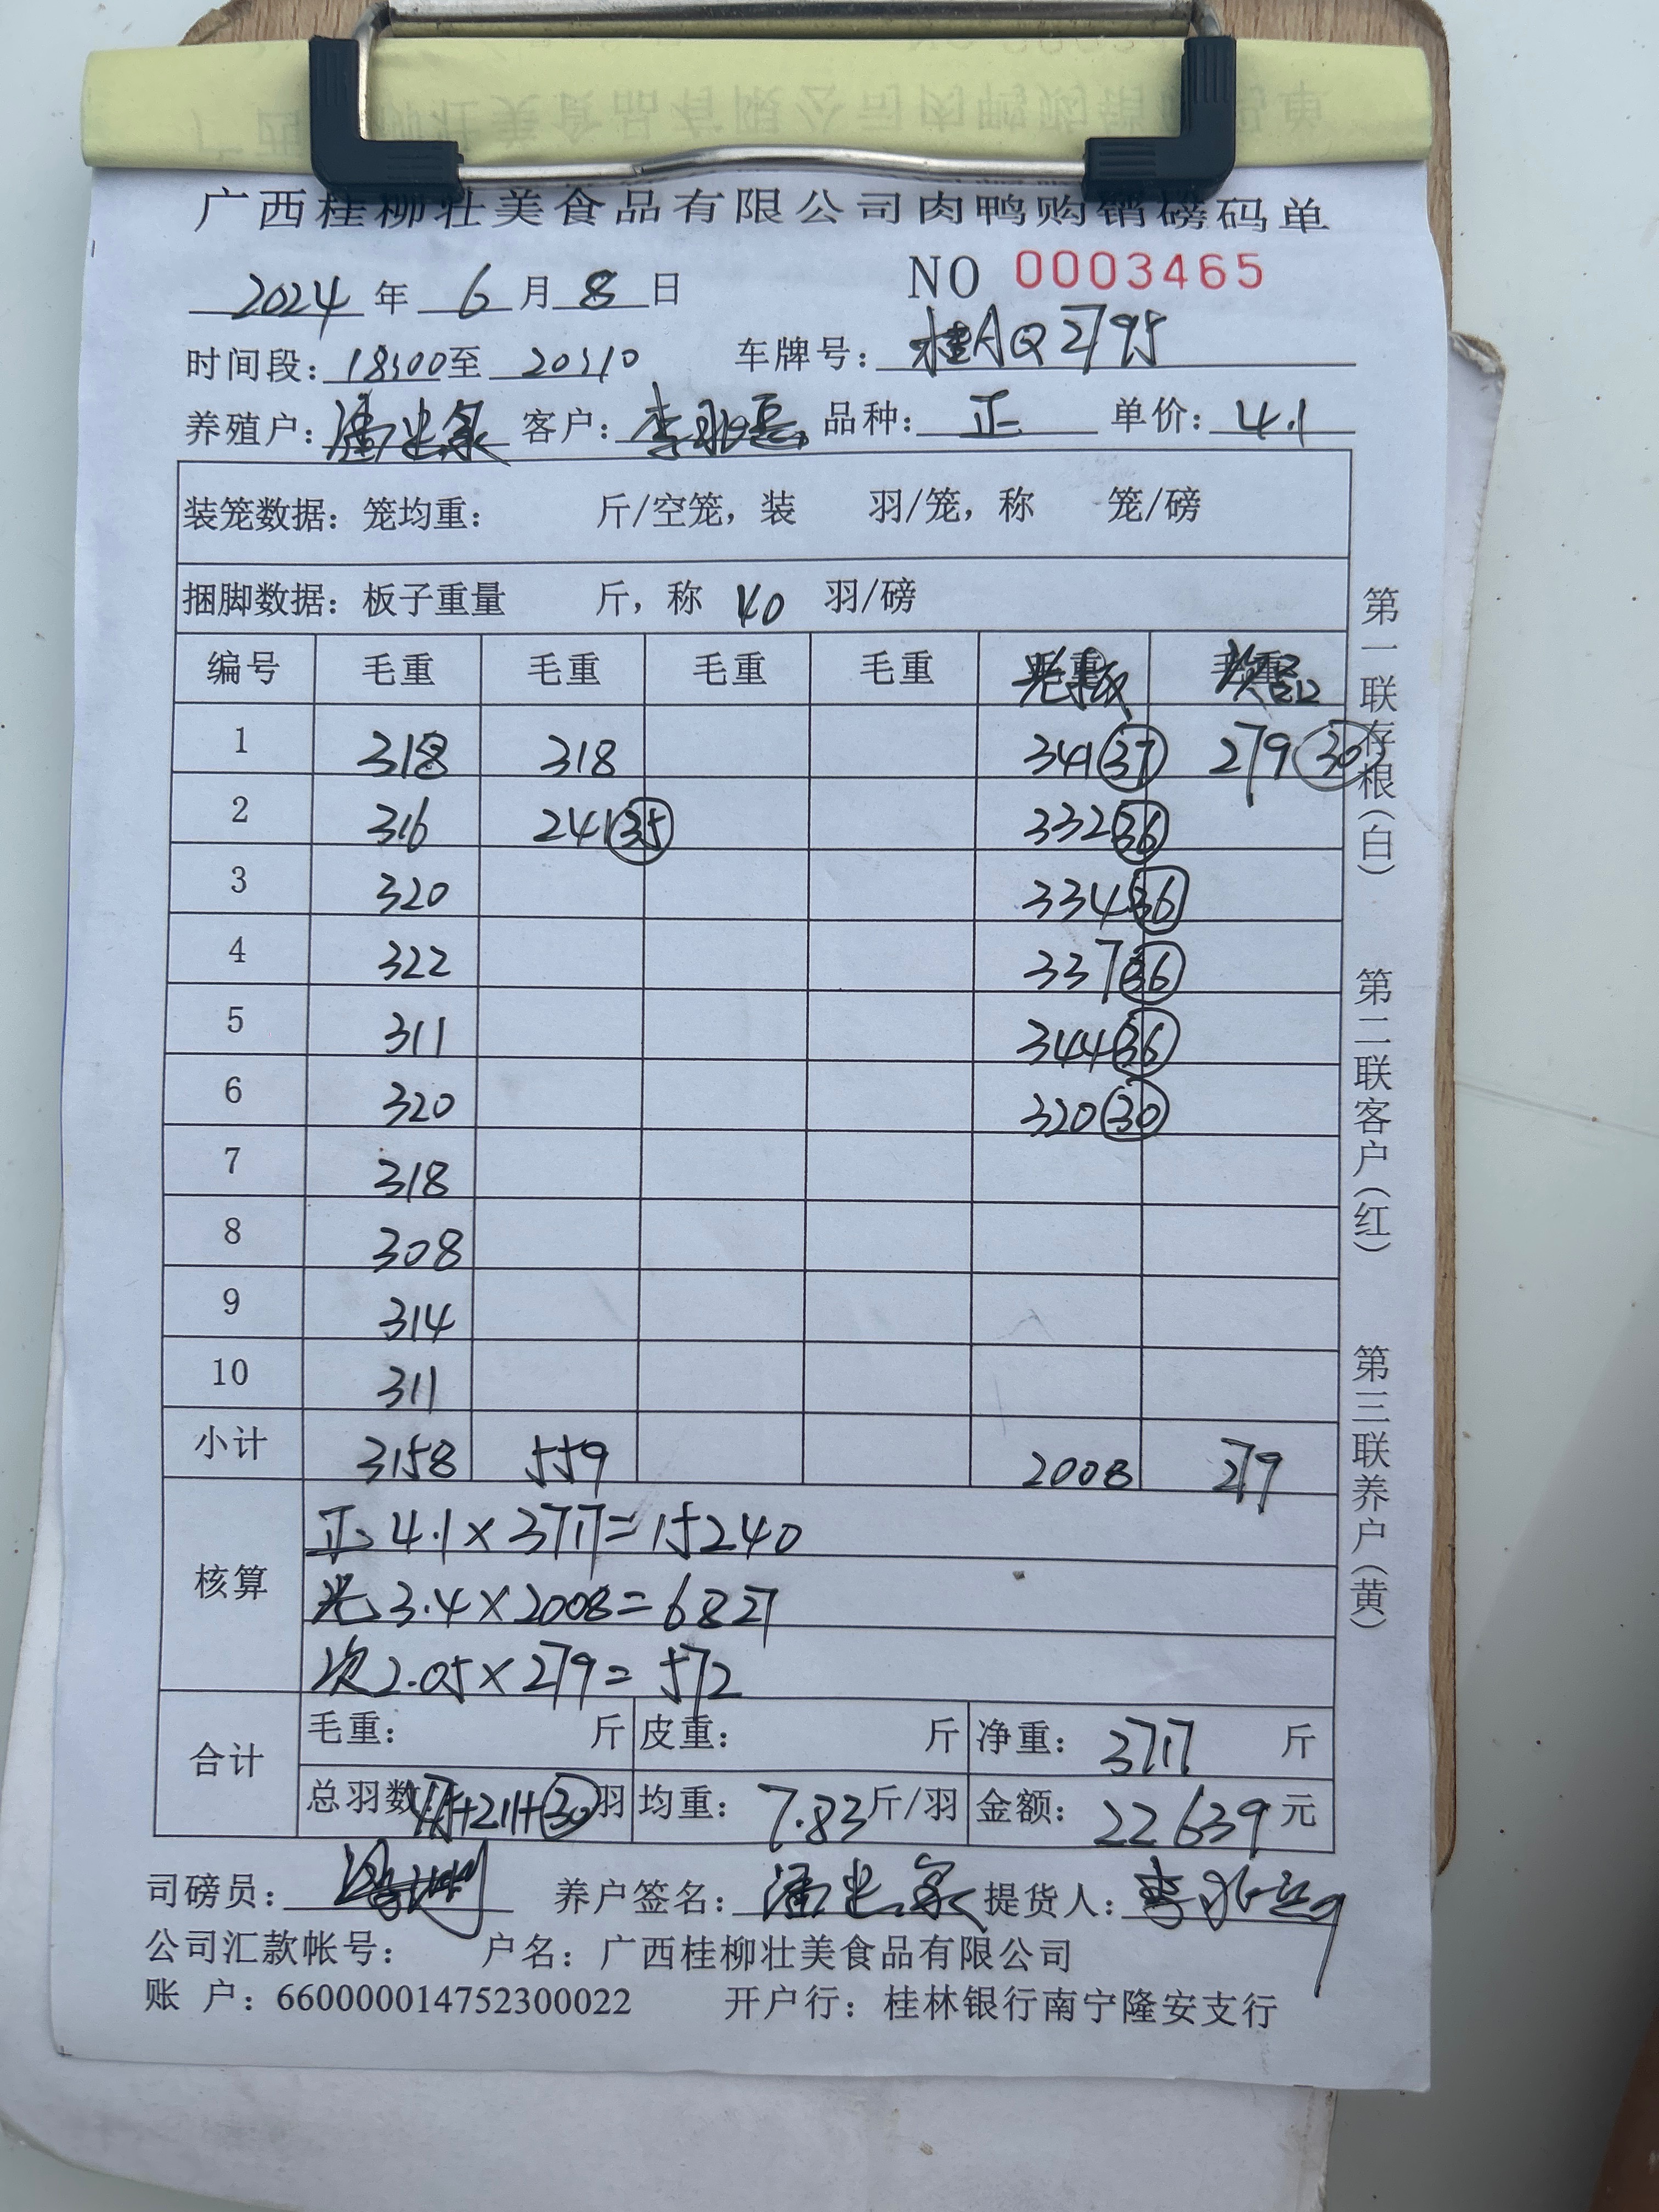 广西桂柳壮美食品有限公司肉鸭购销磅码单
2024年 6月 8日 NO 0003465
时间段：18:00至 20:10 车牌号：桂AQ2795
养殖户：潘 客户：李 品种：正 单价：4.1
装笼数据：笼均重： 斤/空笼，装 羽/笼，称 笼/磅
捆脚数据：板子重量 斤，称 40 羽/磅
编号 毛重 毛重 毛重 毛重 毛重 毛重
1 318 318 341 37 279 30
2 316 241 35 332 36
3 320 334 36
4 322 337 36
5 311 344 36
6 320 320 30
7 318
8 308
9 314
10 311
小计 3158 559 2008 279
核算
正 4.1×3717=15240
光 3.4×2008=6827
次 2.05×279=572
合计
毛重： 斤 皮重： 斤 净重：3717 斤
总羽数：475+211+30羽 均重：7.83斤/羽 金额：22639元
司磅员： 养户签名：潘 提货人：李
公司汇款帐号： 户名：广西桂柳壮美食品有限公司
账 户：660000014752300022 开户行：桂林银行南宁隆安支行
第一联存根（白）
第二联客户（红）
第三联养户（黄）